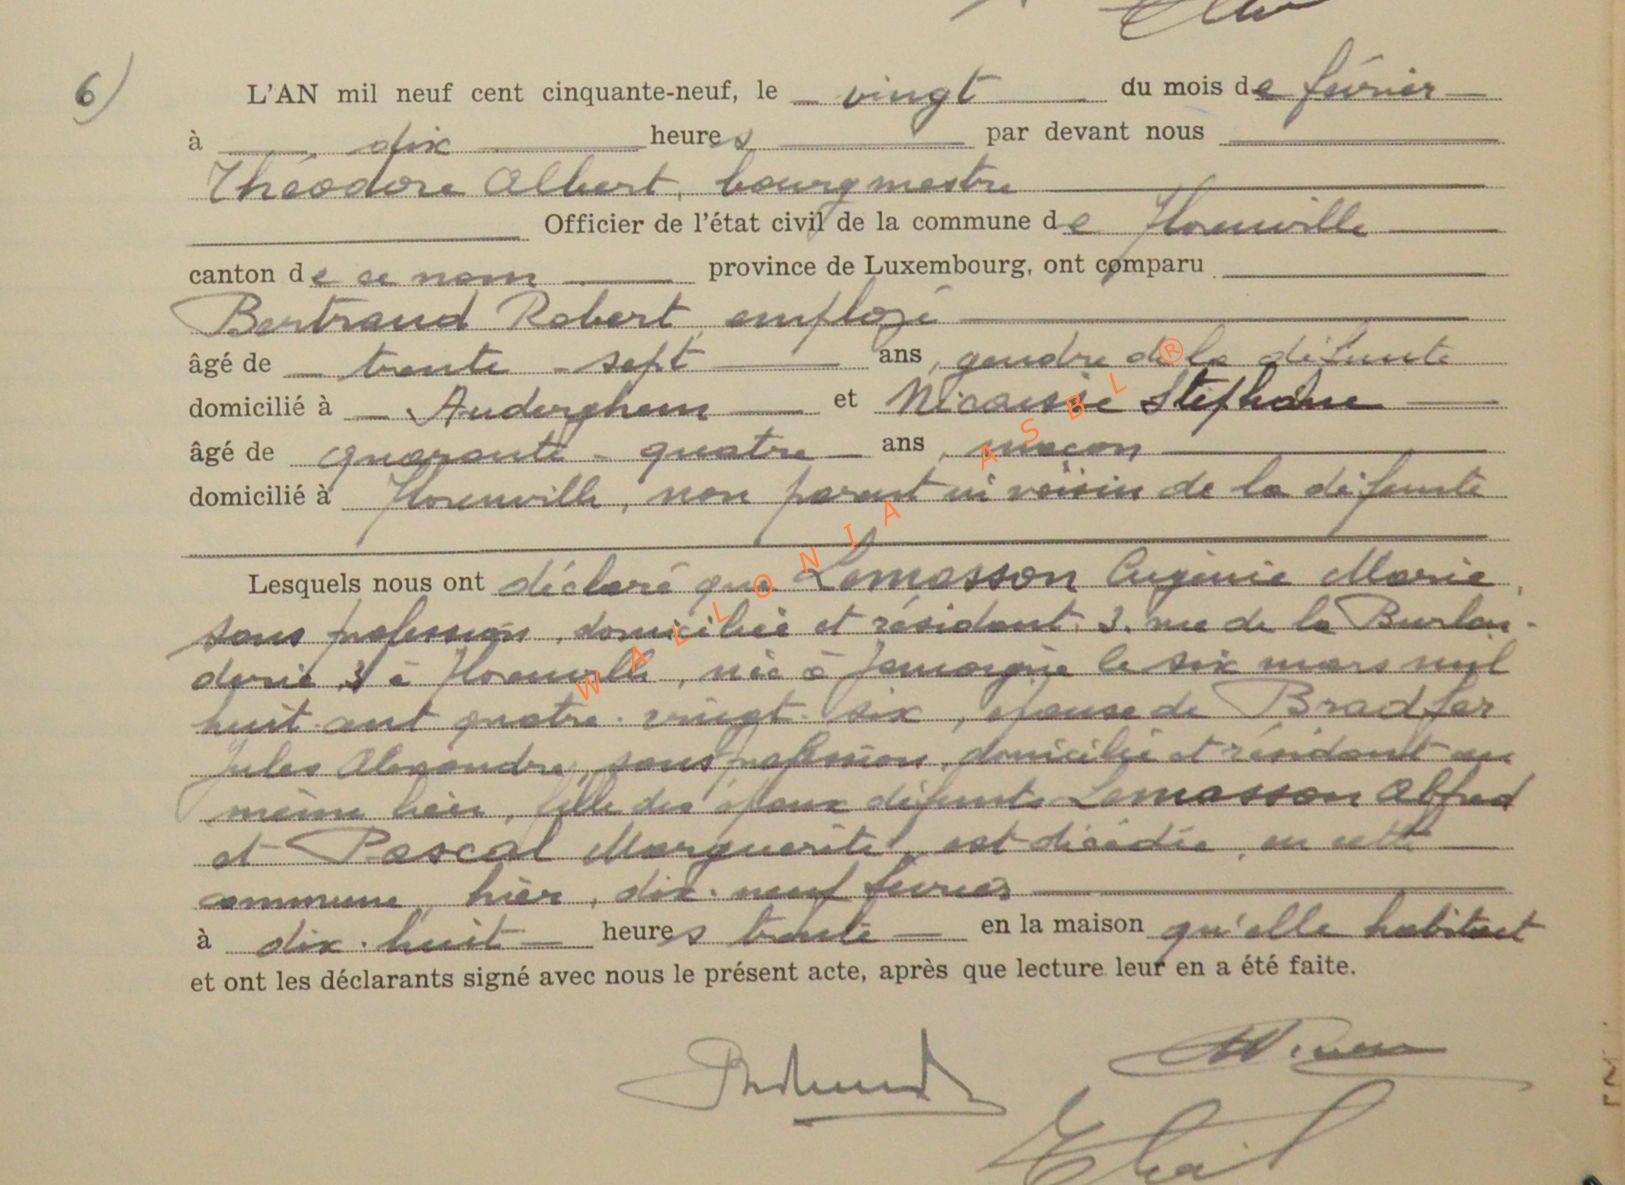 6)
L'AN mil neuf cent cinquante-neuf, le vingt du mois de février
à dix heures par devant nous
Théodore Albert, bourgmestre
Officier de l'état civil de la commune de Florenville
canton de ce nom province de Luxembourg, ont comparu
Bertrand Robert, employé
âgé de trente-sept ans, gendre de la défunte
domicilié à Auderghem et Nicaisse Stéphane
âgé de quarante-quatre ans, maçon
domicilié à Florenville, non parent ni voisin de la défunte
Lesquels nous ont déclaré que Lemasson Eugénie Marie,
sans profession, domiciliée et résidant, 3, rue de la Burlan-
derie, 3 à Florenville, née à Jamoigne le six mars mil
huit cent quatre-vingt-six, épouse de Bradfer
Jules Alexandre, sans profession, domicilié et résidant au
même lieu, fille des époux défunts Lemasson Alfred
et Pascal Marguerite, est décédée, en cette
commune, hier, dix-neuf février
à dix-huit heures trente en la maison qu'elle habitait
et ont les déclarants signé avec nous le présent acte, après que lecture leur en a été faite.
WALLONIA ASBL ®